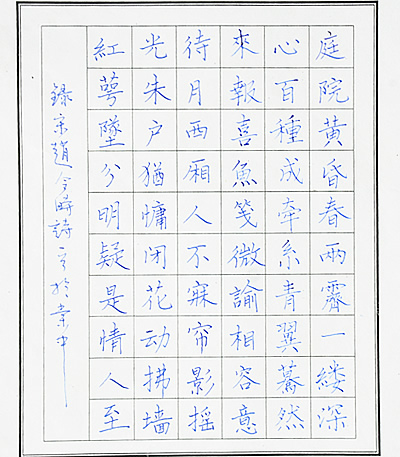 庭院黃昏春雨霽一縷深
心百種成牽系青翼驀然
來報喜魚箋微諭相容意
待月西厢人不寐帘影摇
光朱户猶慵闭花动拂墙
紅萼墜分明疑是情人至
錄宋趙令時詩於中